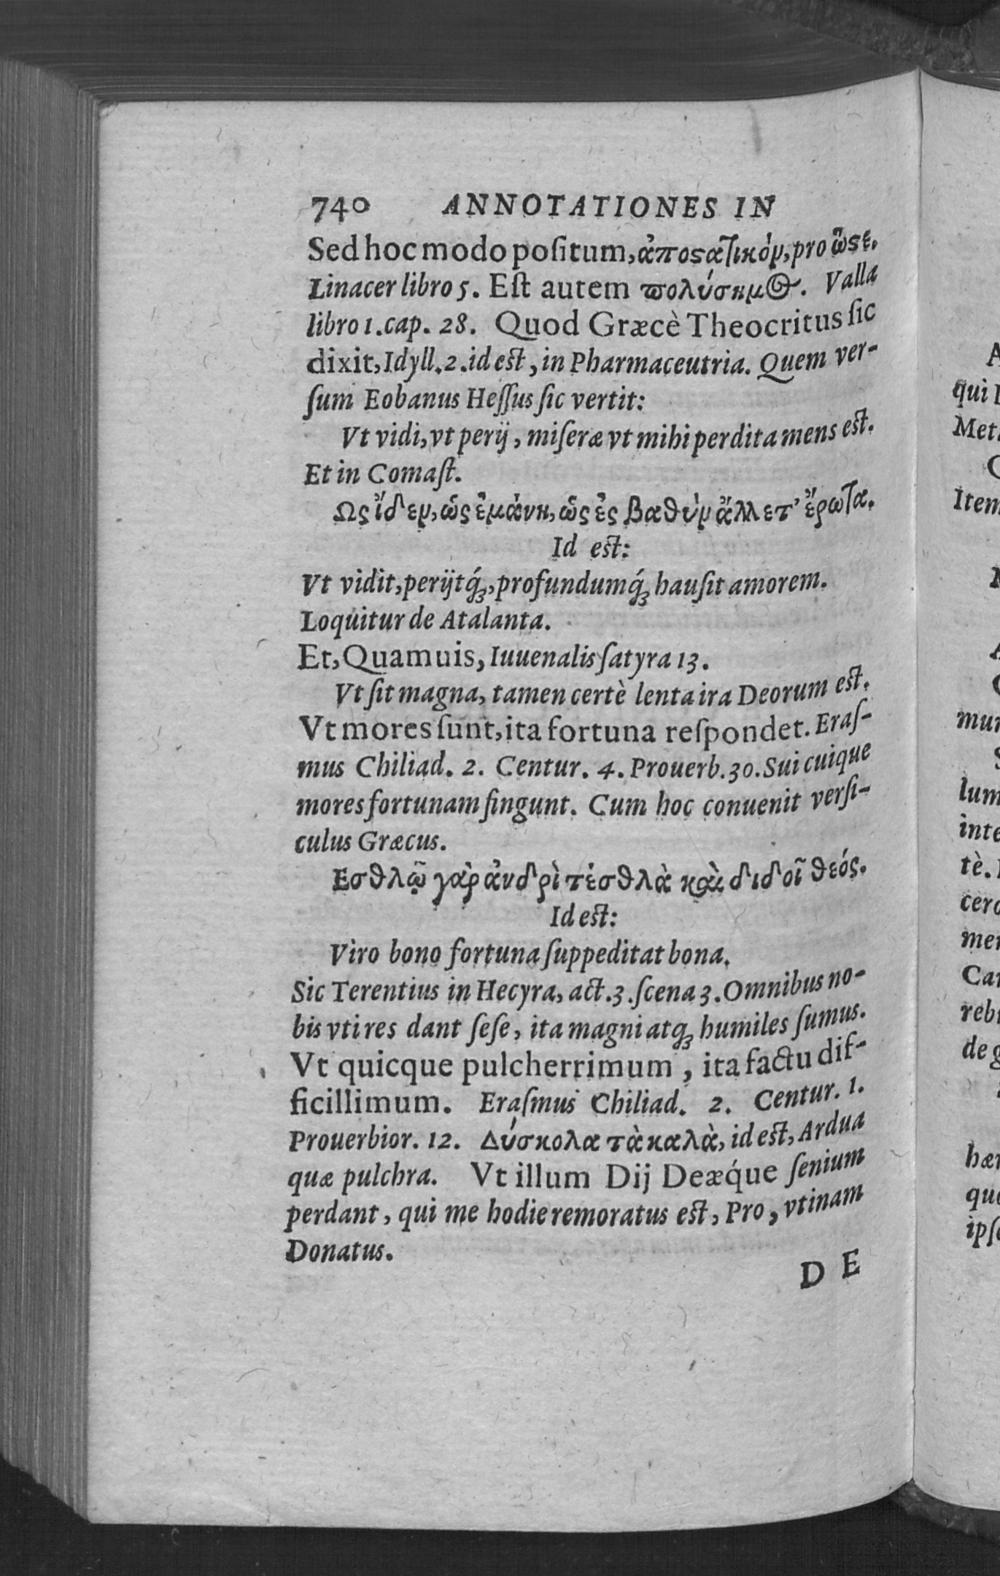 740 ANNOTATIONES IN
Sed hoc modo poſitum, ἀποςατικόν, pro ὥςε.
Linacer libro 5. Eſt autem πολύσημος. Valla
libro 1. cap. 28. Quod Græcè Theocritus ſic
dixit, Idyll. 2. id eſt, in Pharmaceutria. Quem ver-
ſum Eobanus Heſſus ſic vertit:
Vt vidi, vt perij, miſeræ vt mihi perdita mens eſt.
Et in Comaſt.
Ως ἴδεν, ὣς ἐμάνη, ὣς ἐς βαθὺν ἄλλετ' ἔρωτα.
Id eſt:
Vt vidit, perijtq́ꝫ, profundumq́ꝫ hauſit amorem.
Loquitur de Atalanta.
Et, Quamuis, Iuuenalis ſatyra 13.
Vt ſit magna, tamen certè lenta ira Deorum eſt.
Vt mores ſunt, ita fortuna reſpondet. Eraſ-
mus Chiliad. 2. Centur. 4. Prouerb. 30. Sui cuique
mores fortunam fingunt. Cum hoc conuenit verſi-
culus Græcus.
Εσθλῷ γὰρ ἀνδρὶ τἐσθλὰ καὶ διδοῖ θεός.
Id eſt:
Viro bono fortuna ſuppeditat bona.
Sic Terentius in Hecyra, act. 3. ſcena 3. Omnibus no-
bis vti res dant ſeſe, ita magni atqꝫ humiles ſumus.
Vt quicque pulcherrimum, ita factu dif-
ficillimum. Eraſmus Chiliad. 2. Centur. 1.
Prouerbior. 12. Δύσκολα τὰ καλὰ, id eſt, Ardua
quæ pulchra. Vt illum Dij Deæq́ue ſenium
perdant, qui me hodie remoratus eſt, Pro, vtinam
Donatus.
DE
A
qui
Met
Item
mur
lum
inte
tè.
cero
mer
Car
reb
de g
hæ
que
ipſe